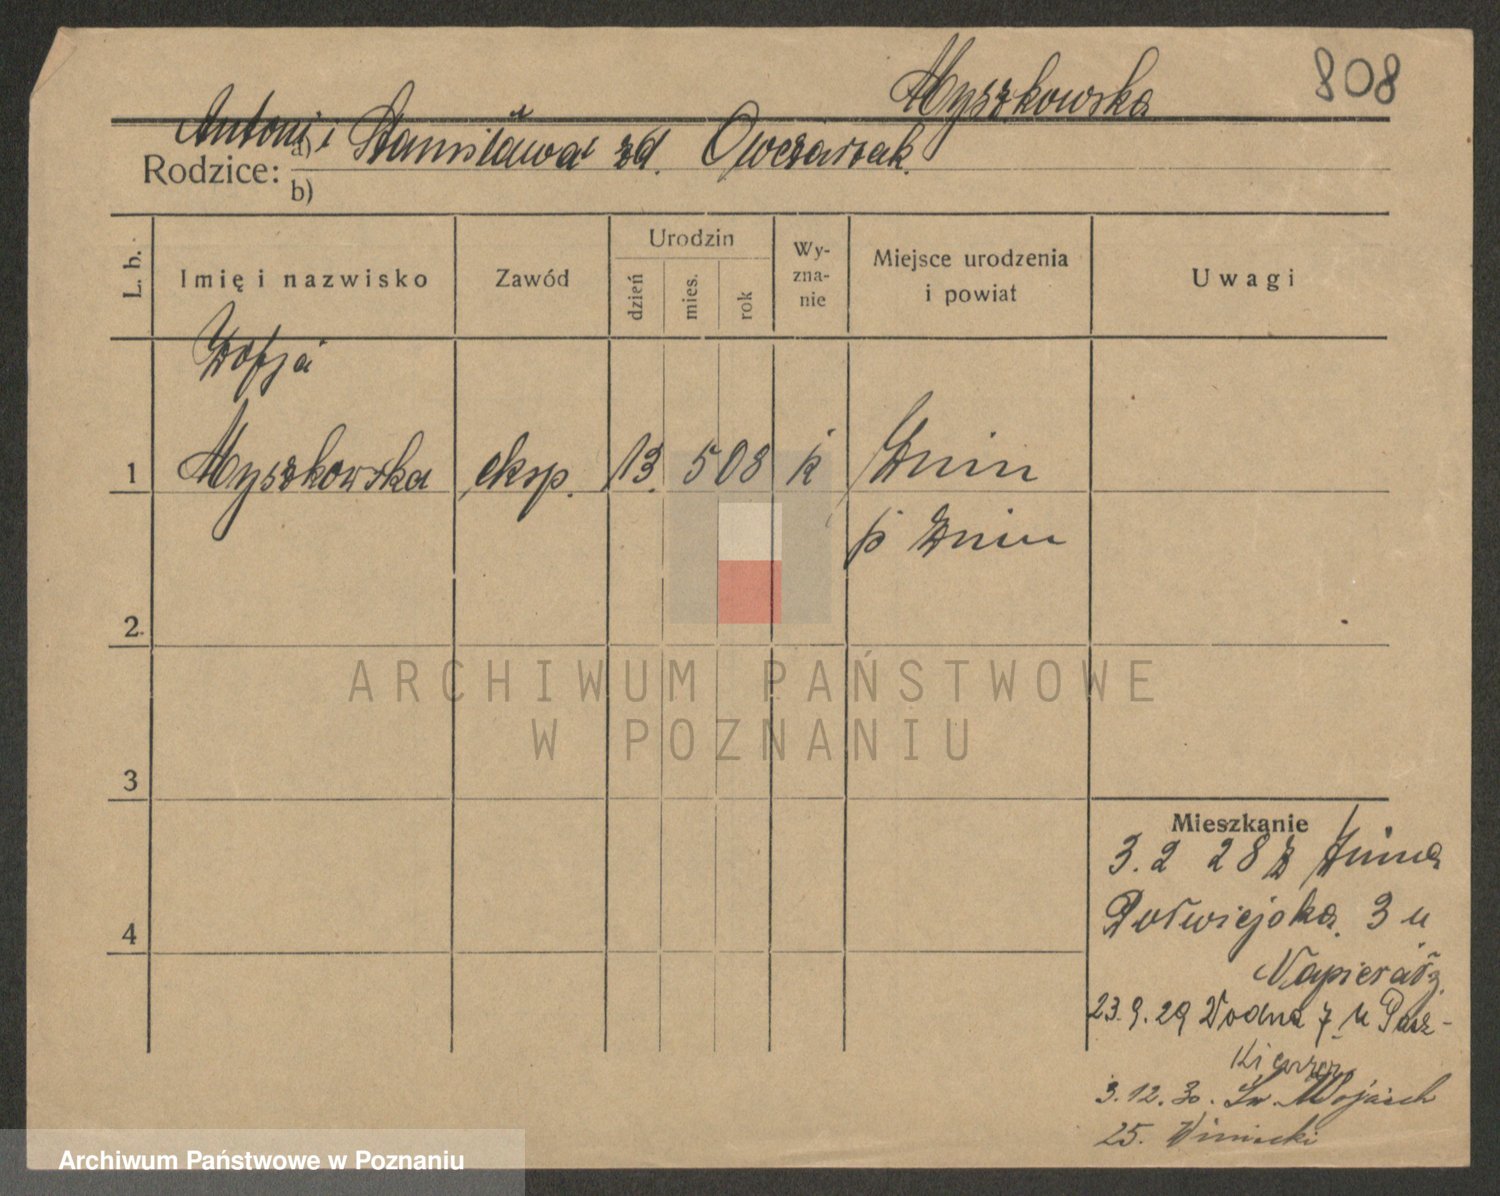 Myszkowska 808
Antoni i Stanisława zd. Owczarzak.
Rodzice: a)
b)
L. b. Imię i nazwisko Zawód Urodzin dzień mies. rok Wy-zna-nie Miejsce urodzenia i powiat Uwagi
Zofja
1 Myszkowska eksp. 13. 5 08 k Żnin
p. Żnin
2.
3
4
Mieszkanie
3.2 28 z Żnina
Półwiejska. 3 u
Napierałz.
23.9.29 Wodna 7 u Pasz-
3.12.30. Św. Wojciech
25. Winiecki
ARCHIWUM PAŃSTWOWE
W POZNANIU
Archiwum Państwowe w Poznaniu